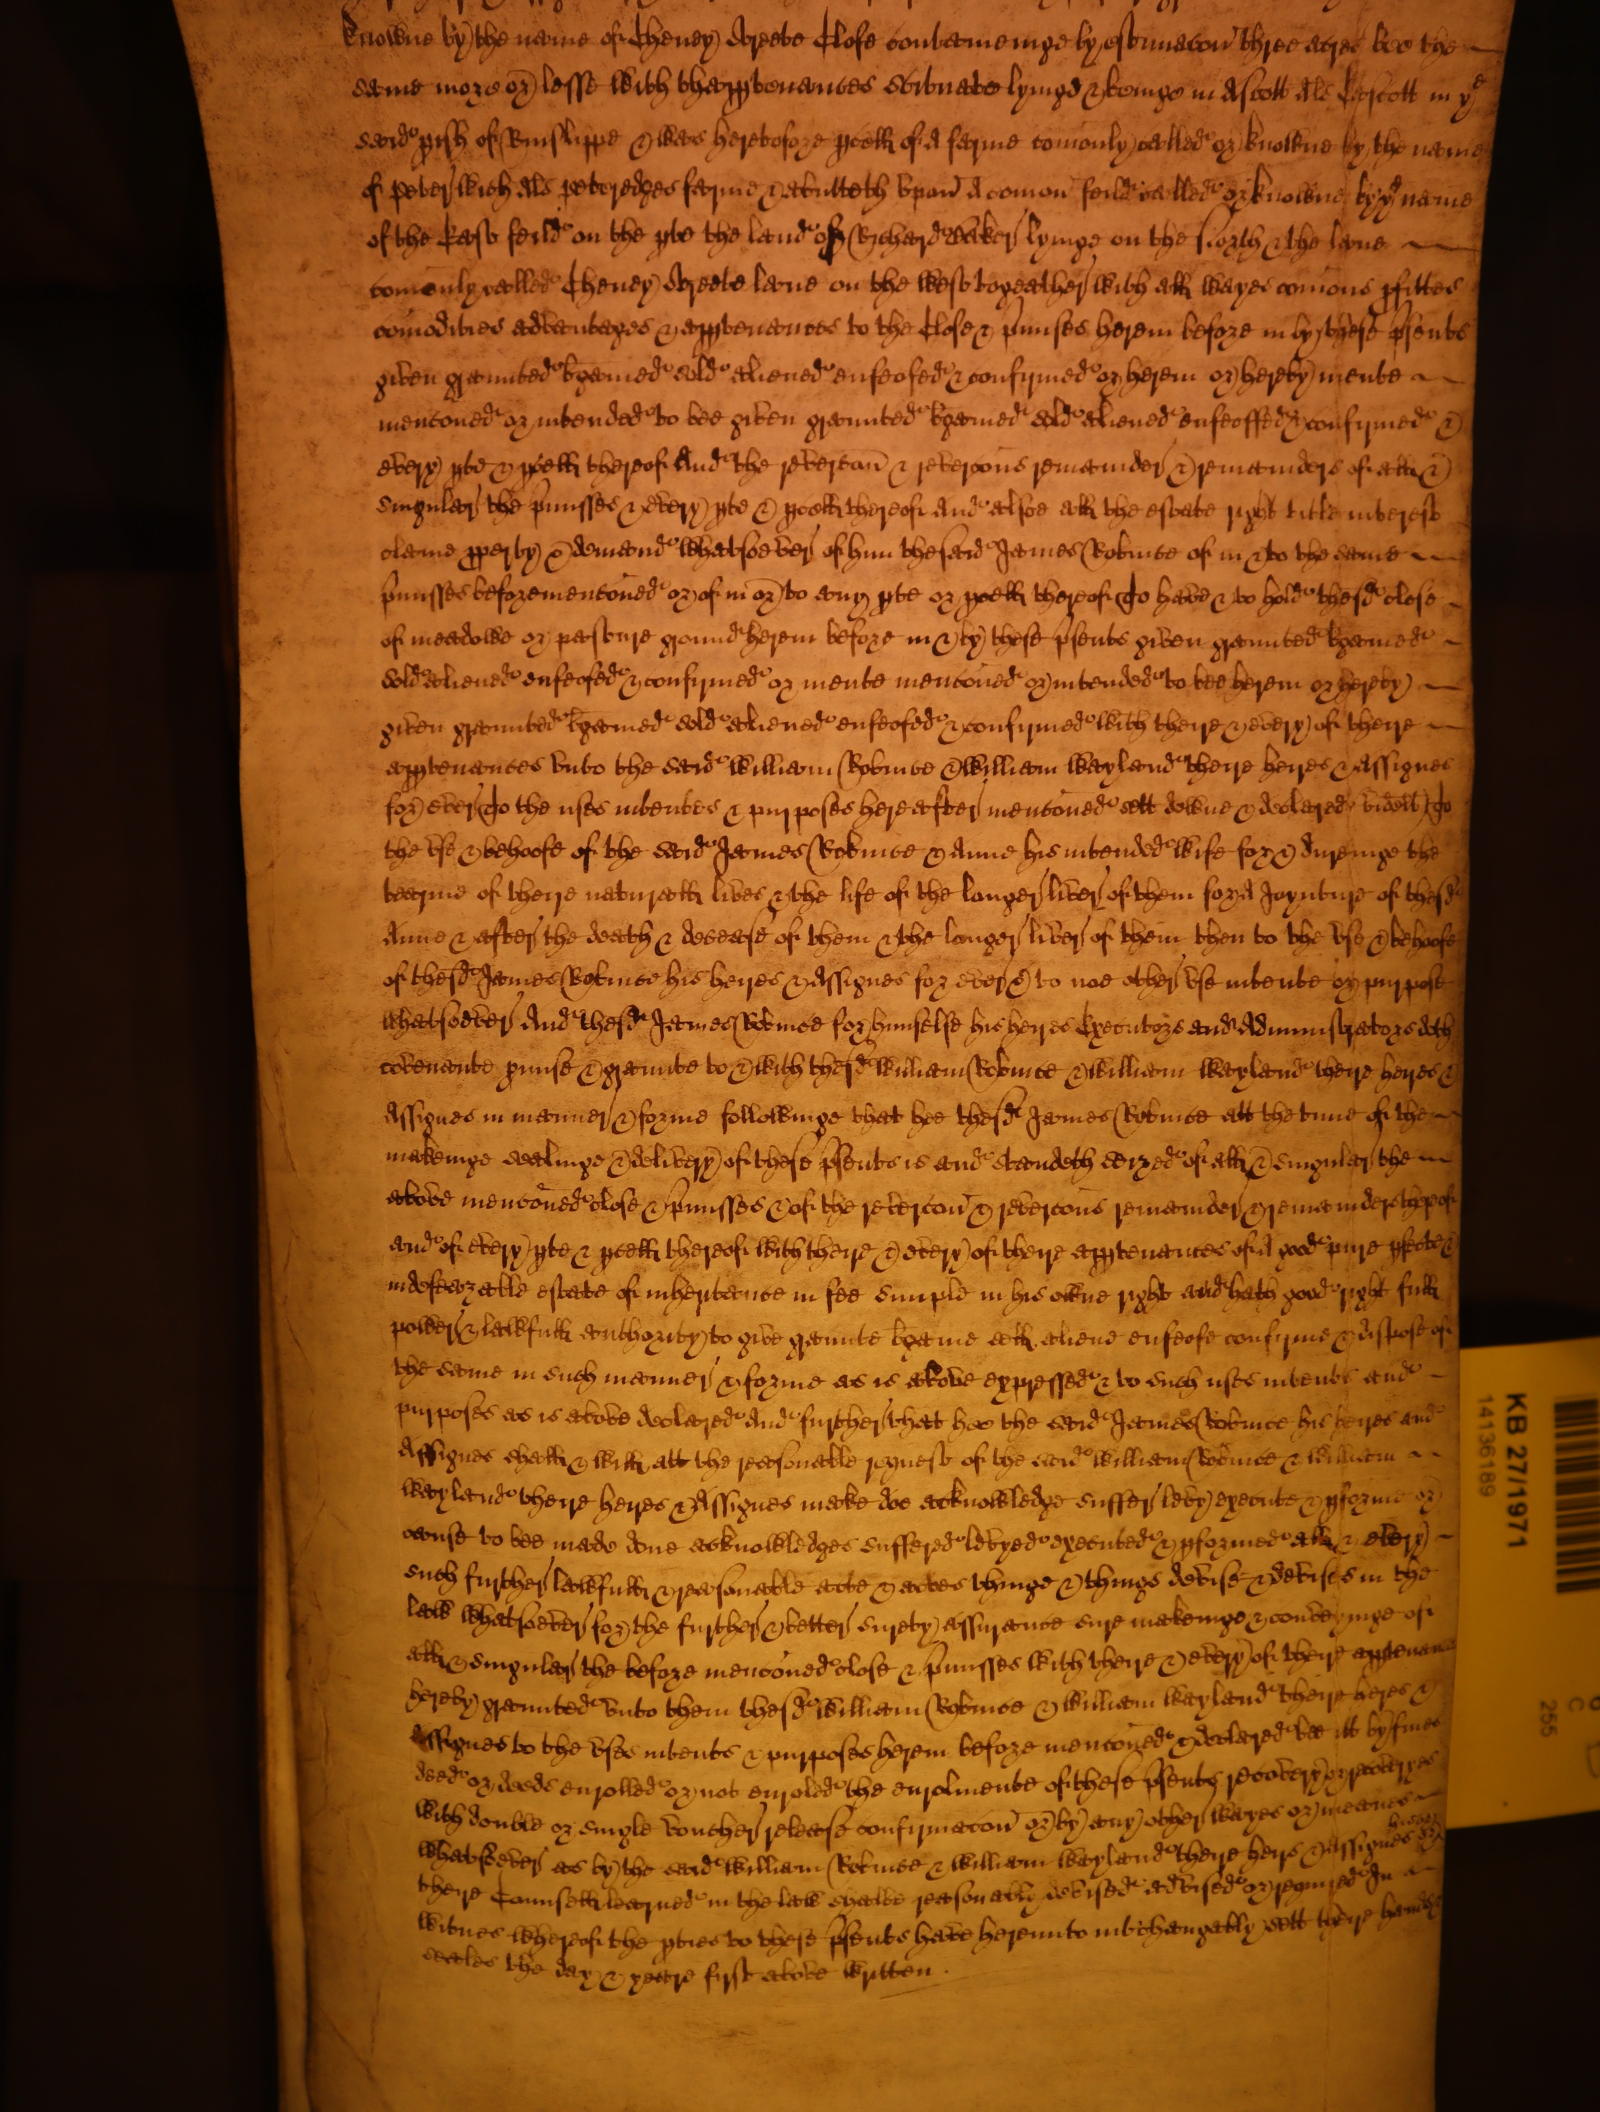 knowne by the name of Cheney streete Close conteineinge by estimacon three acres bee the
same more or lesse with thapptenances scituate lyinge & beinge in Ascott als Eascott in ye
said pish of Rinslippe & was heretofore pcell of a farme comonly called or knowne by the name
of peterswich als peteredges farme & abutteth vpon a comon feild called or knowne by ye name
of the East feild on the pte the land of Richard Baker lyinge on the North & the lane
comonly called Cheney streete lane on the west togeather with all wayes comons pfittes
comodities advantages & apptenances to the Close & pmises herein before in by these psents
given graunted bgained sold aliened enfeofed & confirmed or herein or hereby mente
menconed or intended to bee given graunted bgained sold aliened enfeoffed & confirmed &
every pte & pcell thereof And the revercon & revercons remainder & remainders of all &
singular the pmisses & every pte & pcell thereof And alsoe all the estate right title interest
clame pperty & demand whatsoever of him the said James Robince of in & to the same
pmisses beforemenconed or of in or to any pte or pcell thereof To have & to hold the sd close
of meadowe or pasture ground herein before in & by these psents given graunted bgained
sold aliened enfeofed & confirmed or mente menconed or intended to bee herein or hereby
given graunted bgained sold aliened enfeofed & confirmed with theire & every of theire
apptenances vnto the said William Robince & William Wayland theire heires & Assignes
for ever To the uses intentes & purposes hereafter menconed sett downe & declared videlt To
the vse & behoofe of the said James Robince & Anne his intended wife for & dureinge the
tearme of theire naturall lives & the life of the longer liver of them for a Joynture of the sd
Anne & after the death & decease of them & the longer liver of them then to the vse & behoofe
of the sd James Robince his heires & Assignes for ever & to noe other vse intente or purpose
whatsoever And the sd James Robince for himselfe his heires Executors and Administrators doth
covenante pmise & graunte to & with the sd William Robince & William Wayland theire heires &
Assignes in manner & forme followinge that hee the sd James Robince att the time of the
makeinge sealinge & delivery of these psents is and standeth seized of all & singular the
above menconed close & pmisses & of the revercon & revercons remainder & remainders thereof
and of every pte & pcell thereof with theire & every of theire apptenances of A good pure pfecte &
indefeazable estate of inheritance in fee simple in his owne right and hath good right full
power & lawfull authority to give graunte bgaine sell aliene enfeofe confirme & dispose of
the same in such manner & forme as is above expressed & to such uses intents and
purposes as is above declared And further that hee the said James Robince his heires and
Assignes shall & will att the reasonable request of the said William Robince & William
Wayland theire heires & Assignes make doe acknowledge suffer levy execute & pforme or
cause to bee made done acknowledges suffered levyed executed & pformed all & every
such further lawfull & reasonable acte & actes thinge & things devise & devises in the
law whatsoever for the further & better surety assurance sure makeinge & conveyinge of
all & singular the before menconed close & pmisses with theire & every of theire apptenances
hereby graunted vnto them the sd William Robince & William Wayland theire heires &
Assignes to the vses intents & purposes herein before menconed & declared bee itt by fines
deed or deeds enrolled or not enroled the enrolmente of these psents recovery or recoveryes
with double or single voucher release confirmacon or by any other wayes or meanes
whatsoever as by the said William Robince & William Wayland theire heirs & Assignes his or
theire Counsell learned in the law shalbe reasonably devised advised or required In
witnes whereof the pties to these psents have hereunto intchangably sett theire hands
seales the day & yeare first above written.
KB 27/1971
14136189
255
C